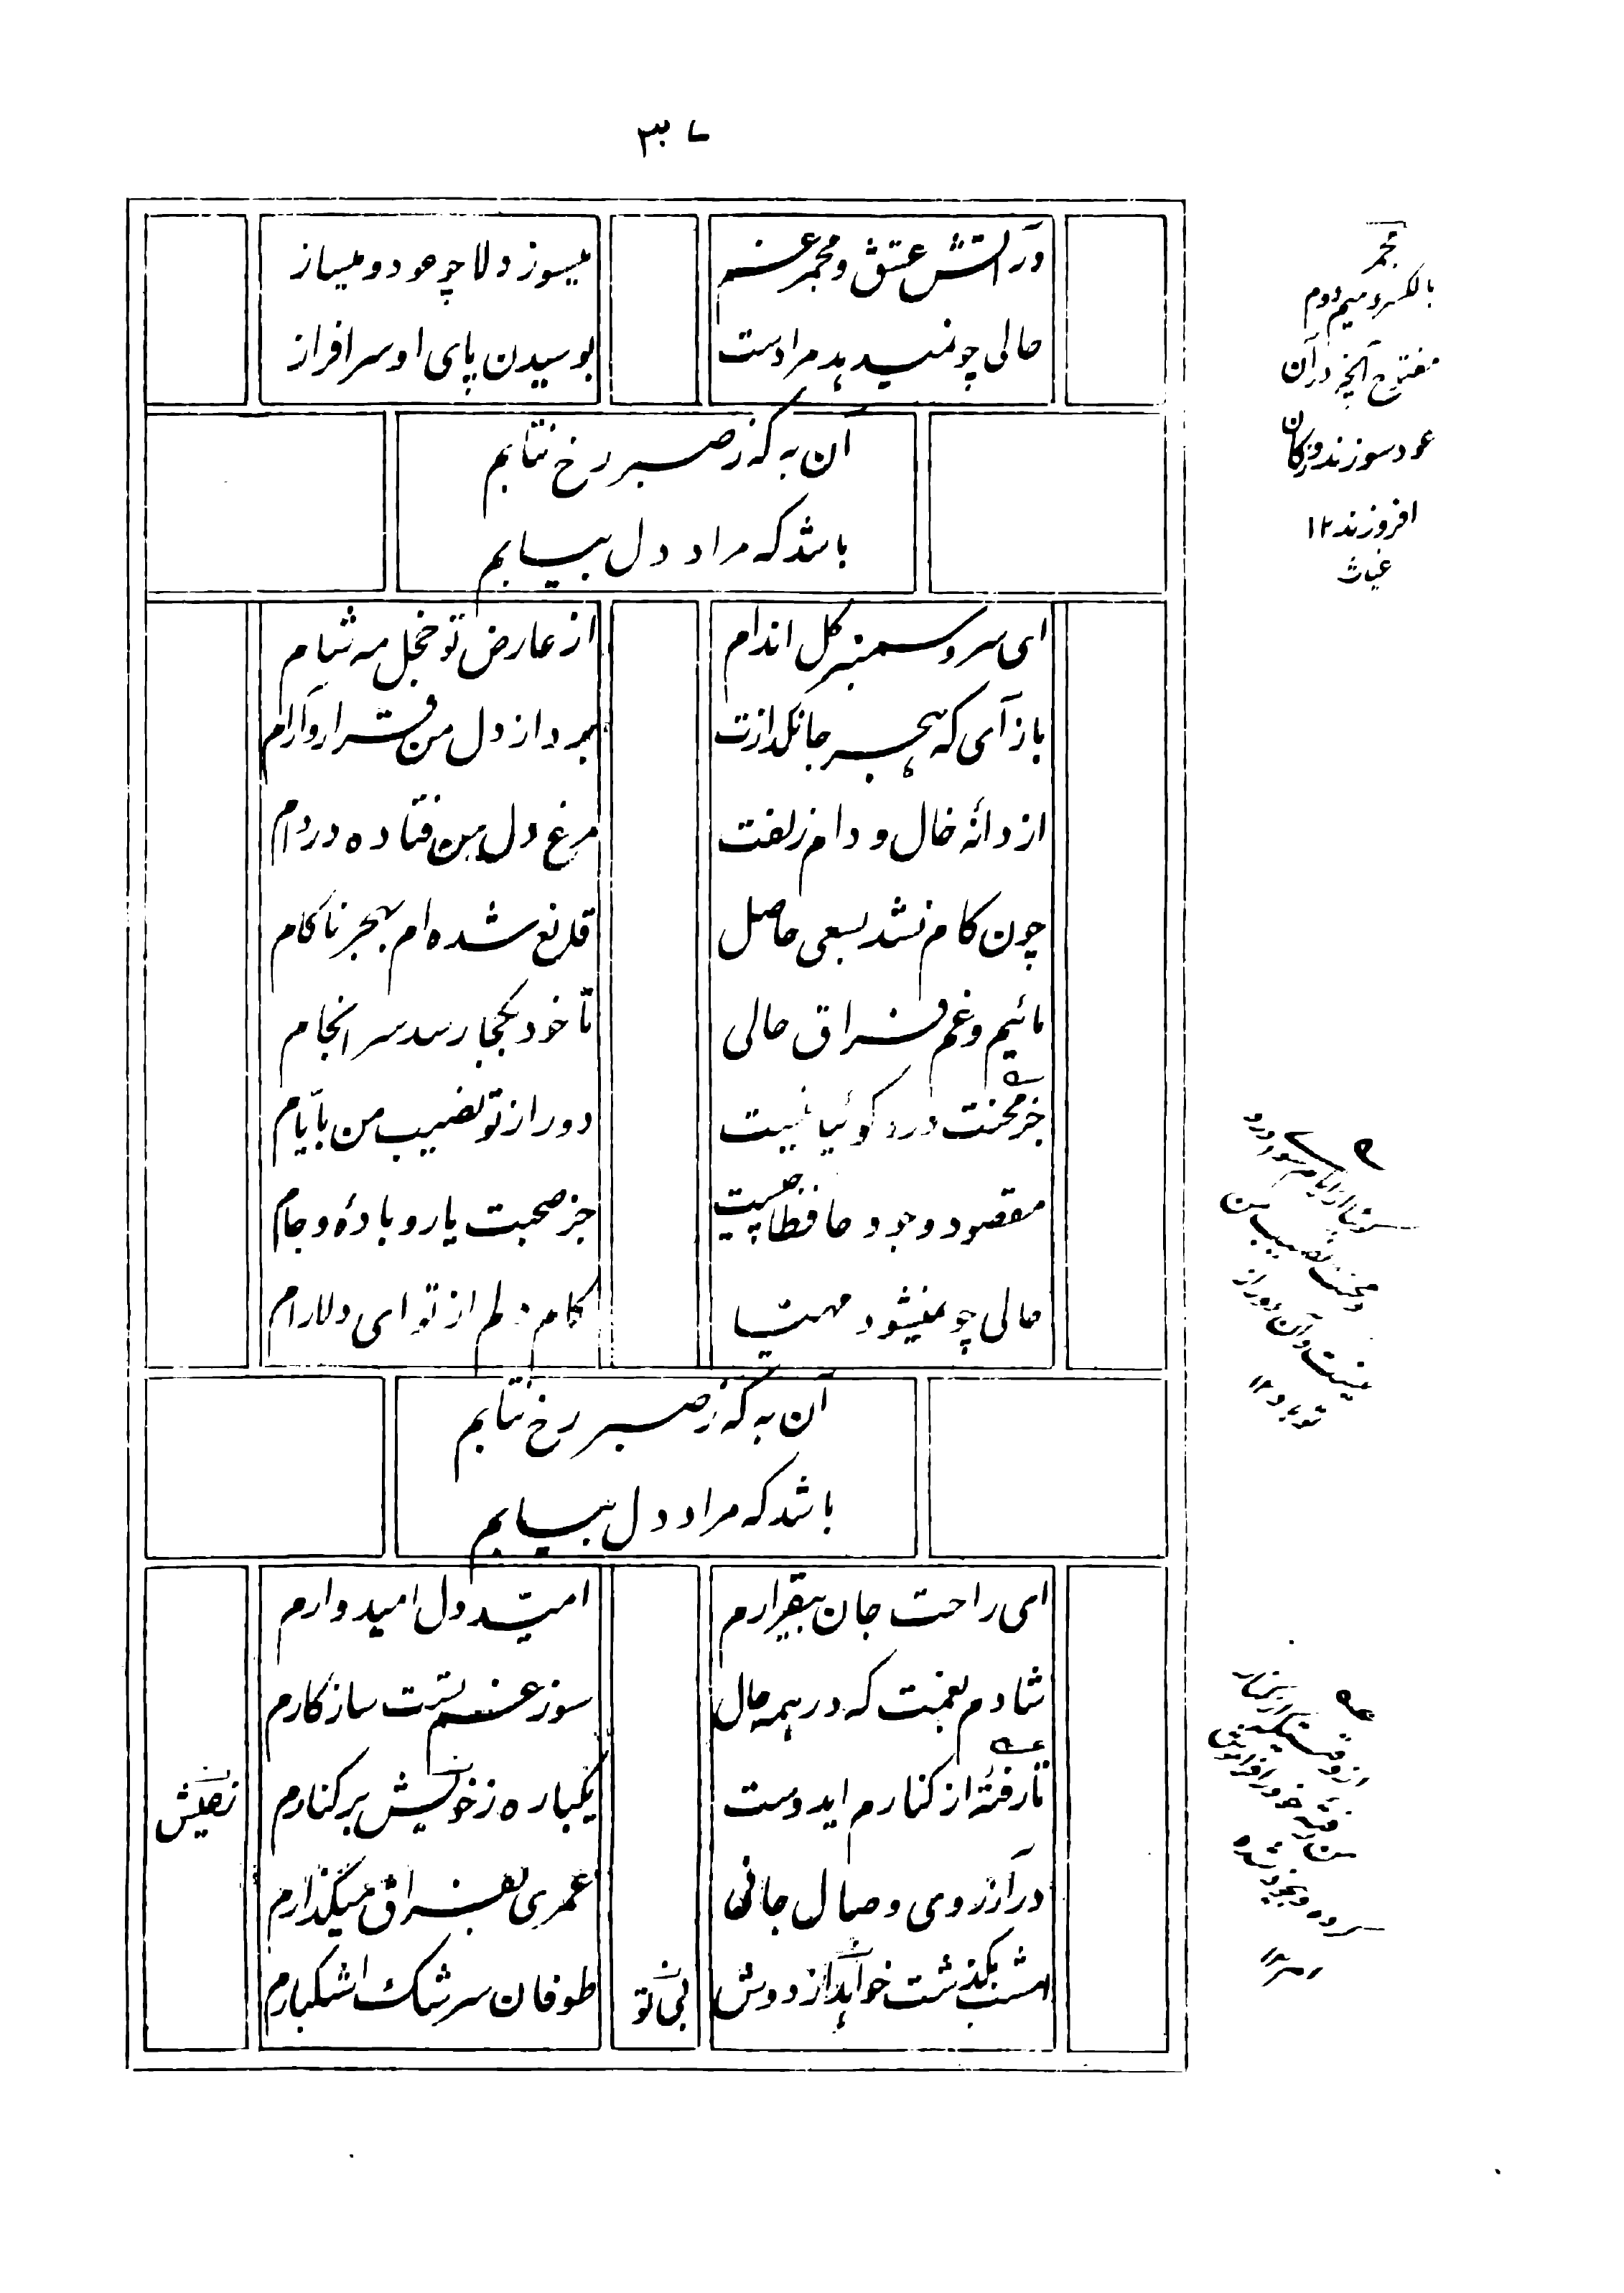 در آتش عشق و مجمر غم
میسوز دلا چو عود و میساز
حالی چو نمیدهد مرا دست
بوسیدن پای او سرافراز
آن به که ز صبر رخ نتابم
باشد که مراد دل بیابم
ای سرو سمنبر گل اندام
از عارض تو خجل مه شام
باز آی که هجر جانگدازت
ببرد از دل من قرار و آرام
از دانهٔ خال و دام زلفت
مرغ دل من فتاده در دام
چون کام نشد بسعی حاصل
قانع شده ام بهجر ناکام
مائیم و غم فراق حالی
تا خود بکجا رسد سرانجام
جز محنت و درد گوئیا نیست
دور از تو نصیب من بایّام
مقصود وجود حافظا چیست
جز صحبت یار و بادهٔ و جام
حالی چو نمیشود مهیّا
کام دلم از تو ای دلارام
آن به که ز صبر رخ نتابم
باشد که مراد دل بیابم
ای راحت جان بیقرارم
امیّد دل امیدوارم
شادم بغمت که در همه حال
سوز غم تست سازگارم
تا رفتهٔ از کنارم ایدوست
یکباره ز خویش برکنارم
در آرزوی وصال جانی
عمری بفراق میگذارم
امشب بگذشت خواهد از دوش
طوفان سرشک اشکبارم
بی تو
مجمر
بالکسر و میم دوم
مفتوح آنچه در آن
عود سوزند و زگان
افروزند ۱۲
غیاث